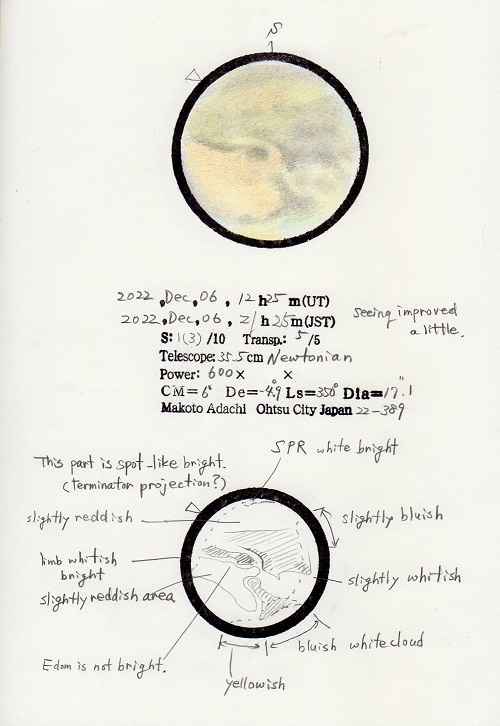 S
2022, Dec, 06, 12h25m(UT)
2022, Dec, 06, 21h25m(JST)
Seeing improved
a little.
S: 1(3)/10 Transp.: 5/5
Telescope: 35.5cm Newtonian
Power: 600× ×
CM=6° De=-4.9° Ls=350° Dia=17.1"
Makoto Adachi Ohtsu City Japan 22-389
SPR white bright
This part is spot-like bright.
(terminator projection?)
slightly reddish
slightly bluish
limb whitish
bright
slightly whitish
slightly reddish area
bluish white cloud
Edom is not bright.
yellowish